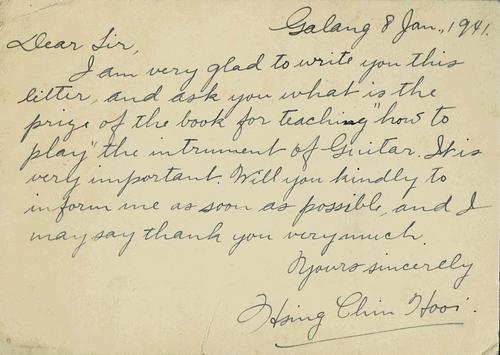 Galang 8 Jan., 1941.
Dear Sir,
I am very glad to write you this
litter, and ask you what is the
prize of the book for teaching "how to
play" the intrument of Guitar. It is
very important. Will you kindly to
inform me as soon as possible, and I
may say thank you very much.
Yours sincerely
Hsing Chin Hooi.